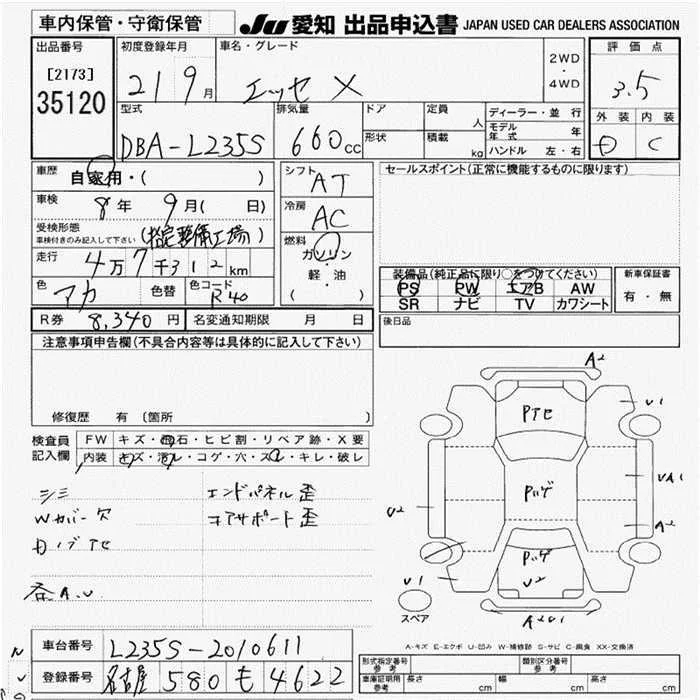 車内保管・守衛保管
JU 愛知 出品申込書 JAPAN USED CAR DEALERS ASSOCIATION
出品番号
[2173]
35120
初度登録年月
21 9月
車名・グレード
エッセ X
2WD
・
4WD
評価点
3.5
外装 内装
D C
型式
DBA-L235S
排気量
660cc
ドア
形状
定員 人
積載 kg
ディーラー・並行
モデル年式 年
ハンドル 左・右
車歴
自家用・( )
車検
8年 9月( 日)
受検形態
車検付きのみ記入して下さい
(指定整備工場)
走行
4万7千312km
色
アカ
色替
色コード
R40
シフト
AT
冷房
AC
燃料
ガソリン
・
軽・油
( )
セールスポイント(正常に機能するものに限ります)
装備品(純正品に限り○をつけてください)
PS PW エアB AW
SR ナビ TV カワシート
新車保証書
有・無
後日品
R券 8,340円
名変通知期限 月 日
注意事項申告欄(不具合内容等は具体的に記入して下さい)
修復歴 有 〔箇所 〕
検査員記入欄
FW キズ・飛石・ヒビ割・リペア跡・X要
内装 キズ・汚れ・コゲ・穴・スレ・キレ・破レ
シミ
Wカバー欠
Dノブアセ
各A.U
エンドパネル歪
コアサポート歪
A2
Pアセ
U1
Pハゲ
UA1
U2
A2
Pハゲ
U2
U1
スペア
A2U1
A-キズ E-エクボ U-凹み W-補修跡 S-サビ C-腐食 XX-交換済
車台番号 L235S-2010611
登録番号 名古屋 580 も 4622
形式指定番号
参考
類別区分番号
参考
車庫証明用
参考
長さ cm 幅 cm 高さ cm